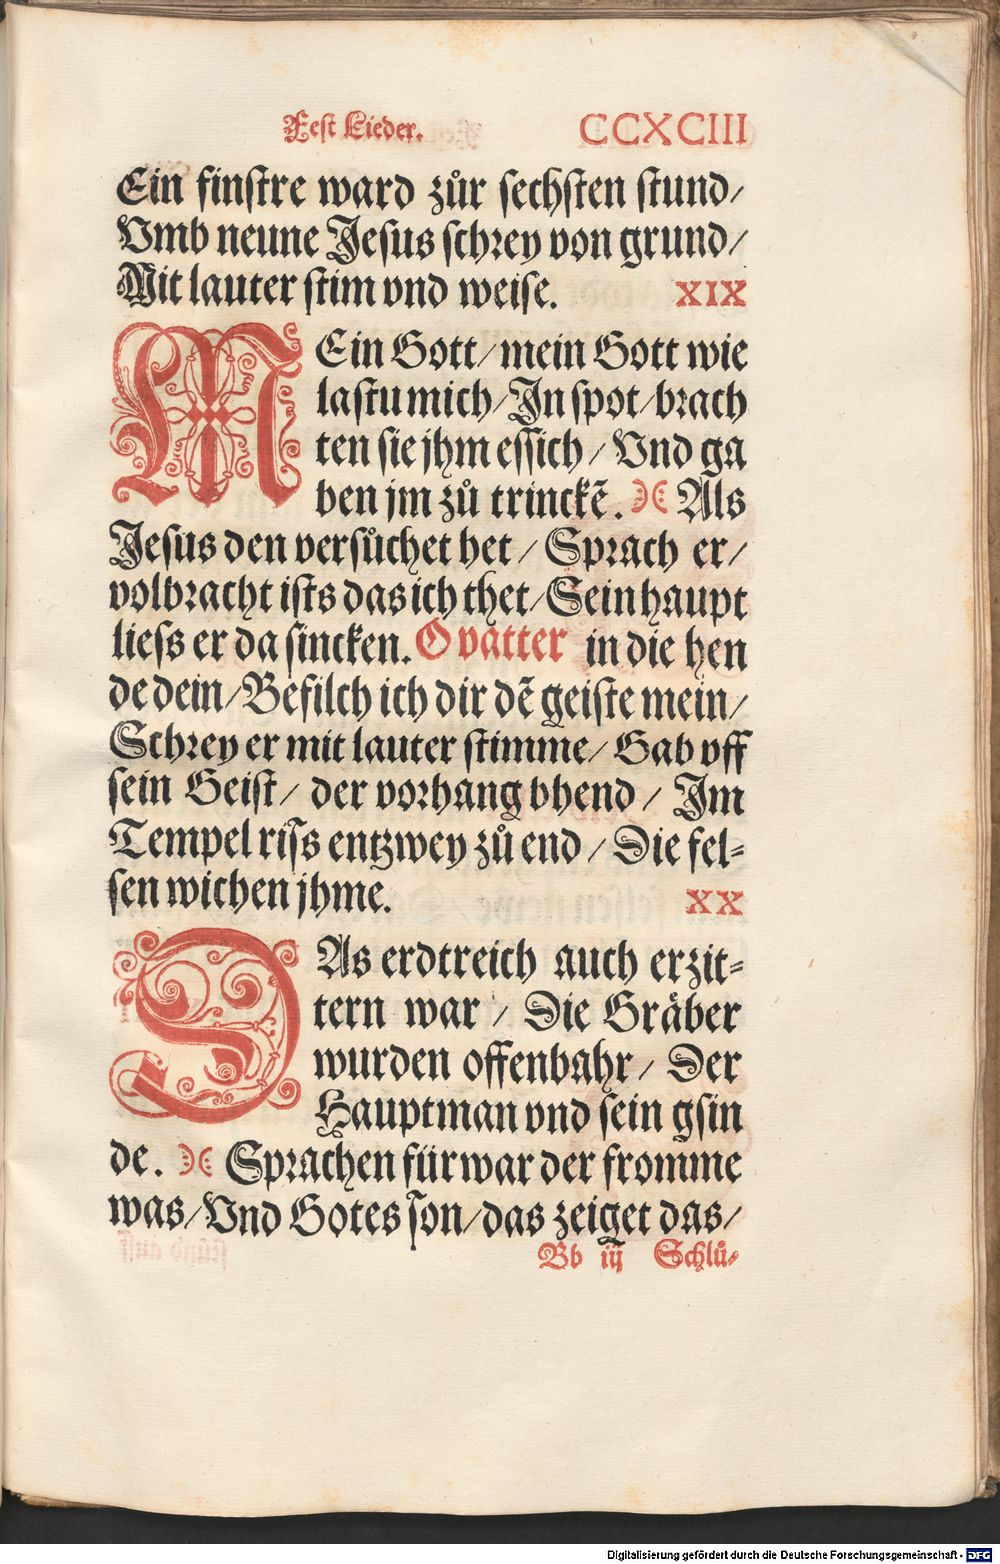 Fest Lieder. CCXCIII
Ein finstre ward zůr sechsten stund/
Vmb neune Jesus schrey von grund/
Mit lauter stim vnd weise. XIX
MEin Gott/mein Gott wie
lastu mich/In spot/brach
ten sie jhm essich/Vnd ga
ben jm zů trinckẽ. Als
Jesus den versůchet het/Sprach er/
volbracht ists das ich thet/Sein haupt
liess er da sincken. O vatter in die hen
de dein/Befilch ich dir dẽ geiste mein/
Schrey er mit lauter stimme/Gab vff
sein Geist/der vorhang bhend/Im
Tempel riss entzwey zů end/Die fel-
sen wichen jhme. XX
DAs erdtreich auch erzit-
tern war/Die Gräber
wurden offenbahr/Der
Hauptman vnd sein gsin
de. Sprachen fürwar der fromme
was/Vnd Gotes son/das zeiget das/
Bb iij Schlů-
Digitalisierung gefördert durch die Deutsche Forschungsgemeinschaft - DFG